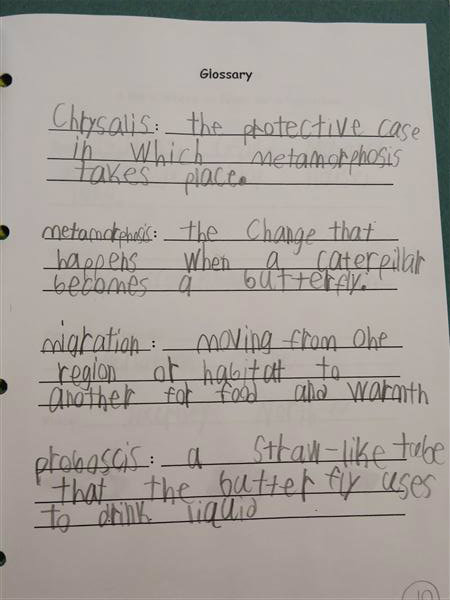 Glossary
Chrysalis: the protective case
in which metamorphosis
takes place.
metamorphosis: the Change that
happens when a caterpillar
becomes a butterfly.
migration: moving from one
region or habitat to
another for food and warmth
proboscis: a straw-like tube
that the butterfly uses
to drink liquid
10